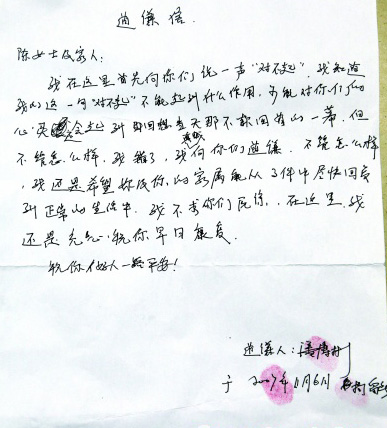 道歉信
陈女士及家人:
我在这里首先向你们说一声“对不起”.我知道
我的这一句“对不起”不能起到什么作用,
心 到那回想当天那不敢回首的一幕,但
不管怎么样,我错了,我向你们道歉.不管怎么样
,我还是希望你及你的家属能从事件中尽快回复
到正常的生活中.我不求你们原谅,在这里,我
还是衷心祝你早日康复.
祝你们好人一生平安!
道歉人:
于2007年11月6日